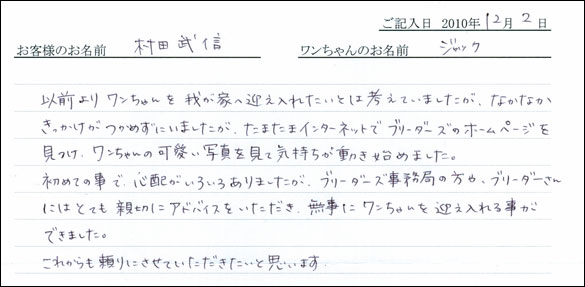 ご記入日 2010年12月2日
お客様のお名前 村田武信 ワンちゃんのお名前 ジャック
以前よりワンちゃんを我が家へ迎え入れたいとは考えていましたが、なかなか
きっかけがつかめずにいましたが、たまたまインターネットでブリーダーズのホームページを
見つけ、ワンちゃんの可愛い写真を見て気持ちが動き始めました。
初めての事で、心配がいろいろありましたが、ブリーダーズ事務局の方や、ブリーダーさん
にはとても親切にアドバイスをいただき、無事にワンちゃんを迎え入れる事が
できました。
これからも頼りにさせていただきたいと思います。